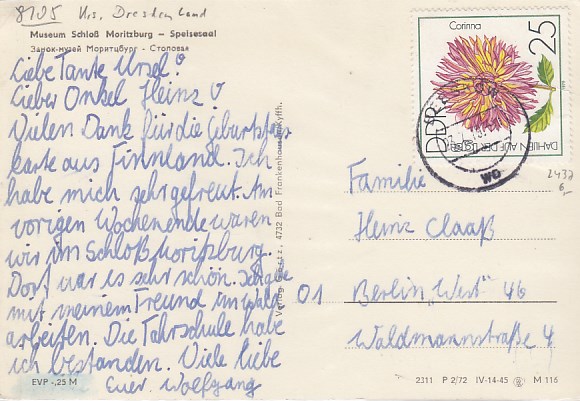 8105 Krs. Dresden Land
Museum Schloß Moritzburg – Speisesaal
Замок-музей Моритцбург - Столовая
Liebe Tante Ursel!
Lieber Onkel Heinz!
Vielen Dank für die Geburtstags
karte aus Finnland. Ich
habe mich sehr gefreut. Am
vorigen Wochenende waren
wir im Schloß Moritzburg.
Dort war es sehr schön.
mit meinem Freund im Wald
arbeiten. Die Fahrschule habe
ich bestanden. Viele liebe
Euer Wolfgang
EVP -,25 M
Verlag 4732 Bad Frankenhausen/Kyffh.
Corinna
25
DDR
DAHLIEN AUF DER
1979
WD
2432
6,-
Familie
Heinz Claaß
01 Berlin "West" 46
Waldmannstraße 4
2311 P 2/72 IV-14-45 M 116